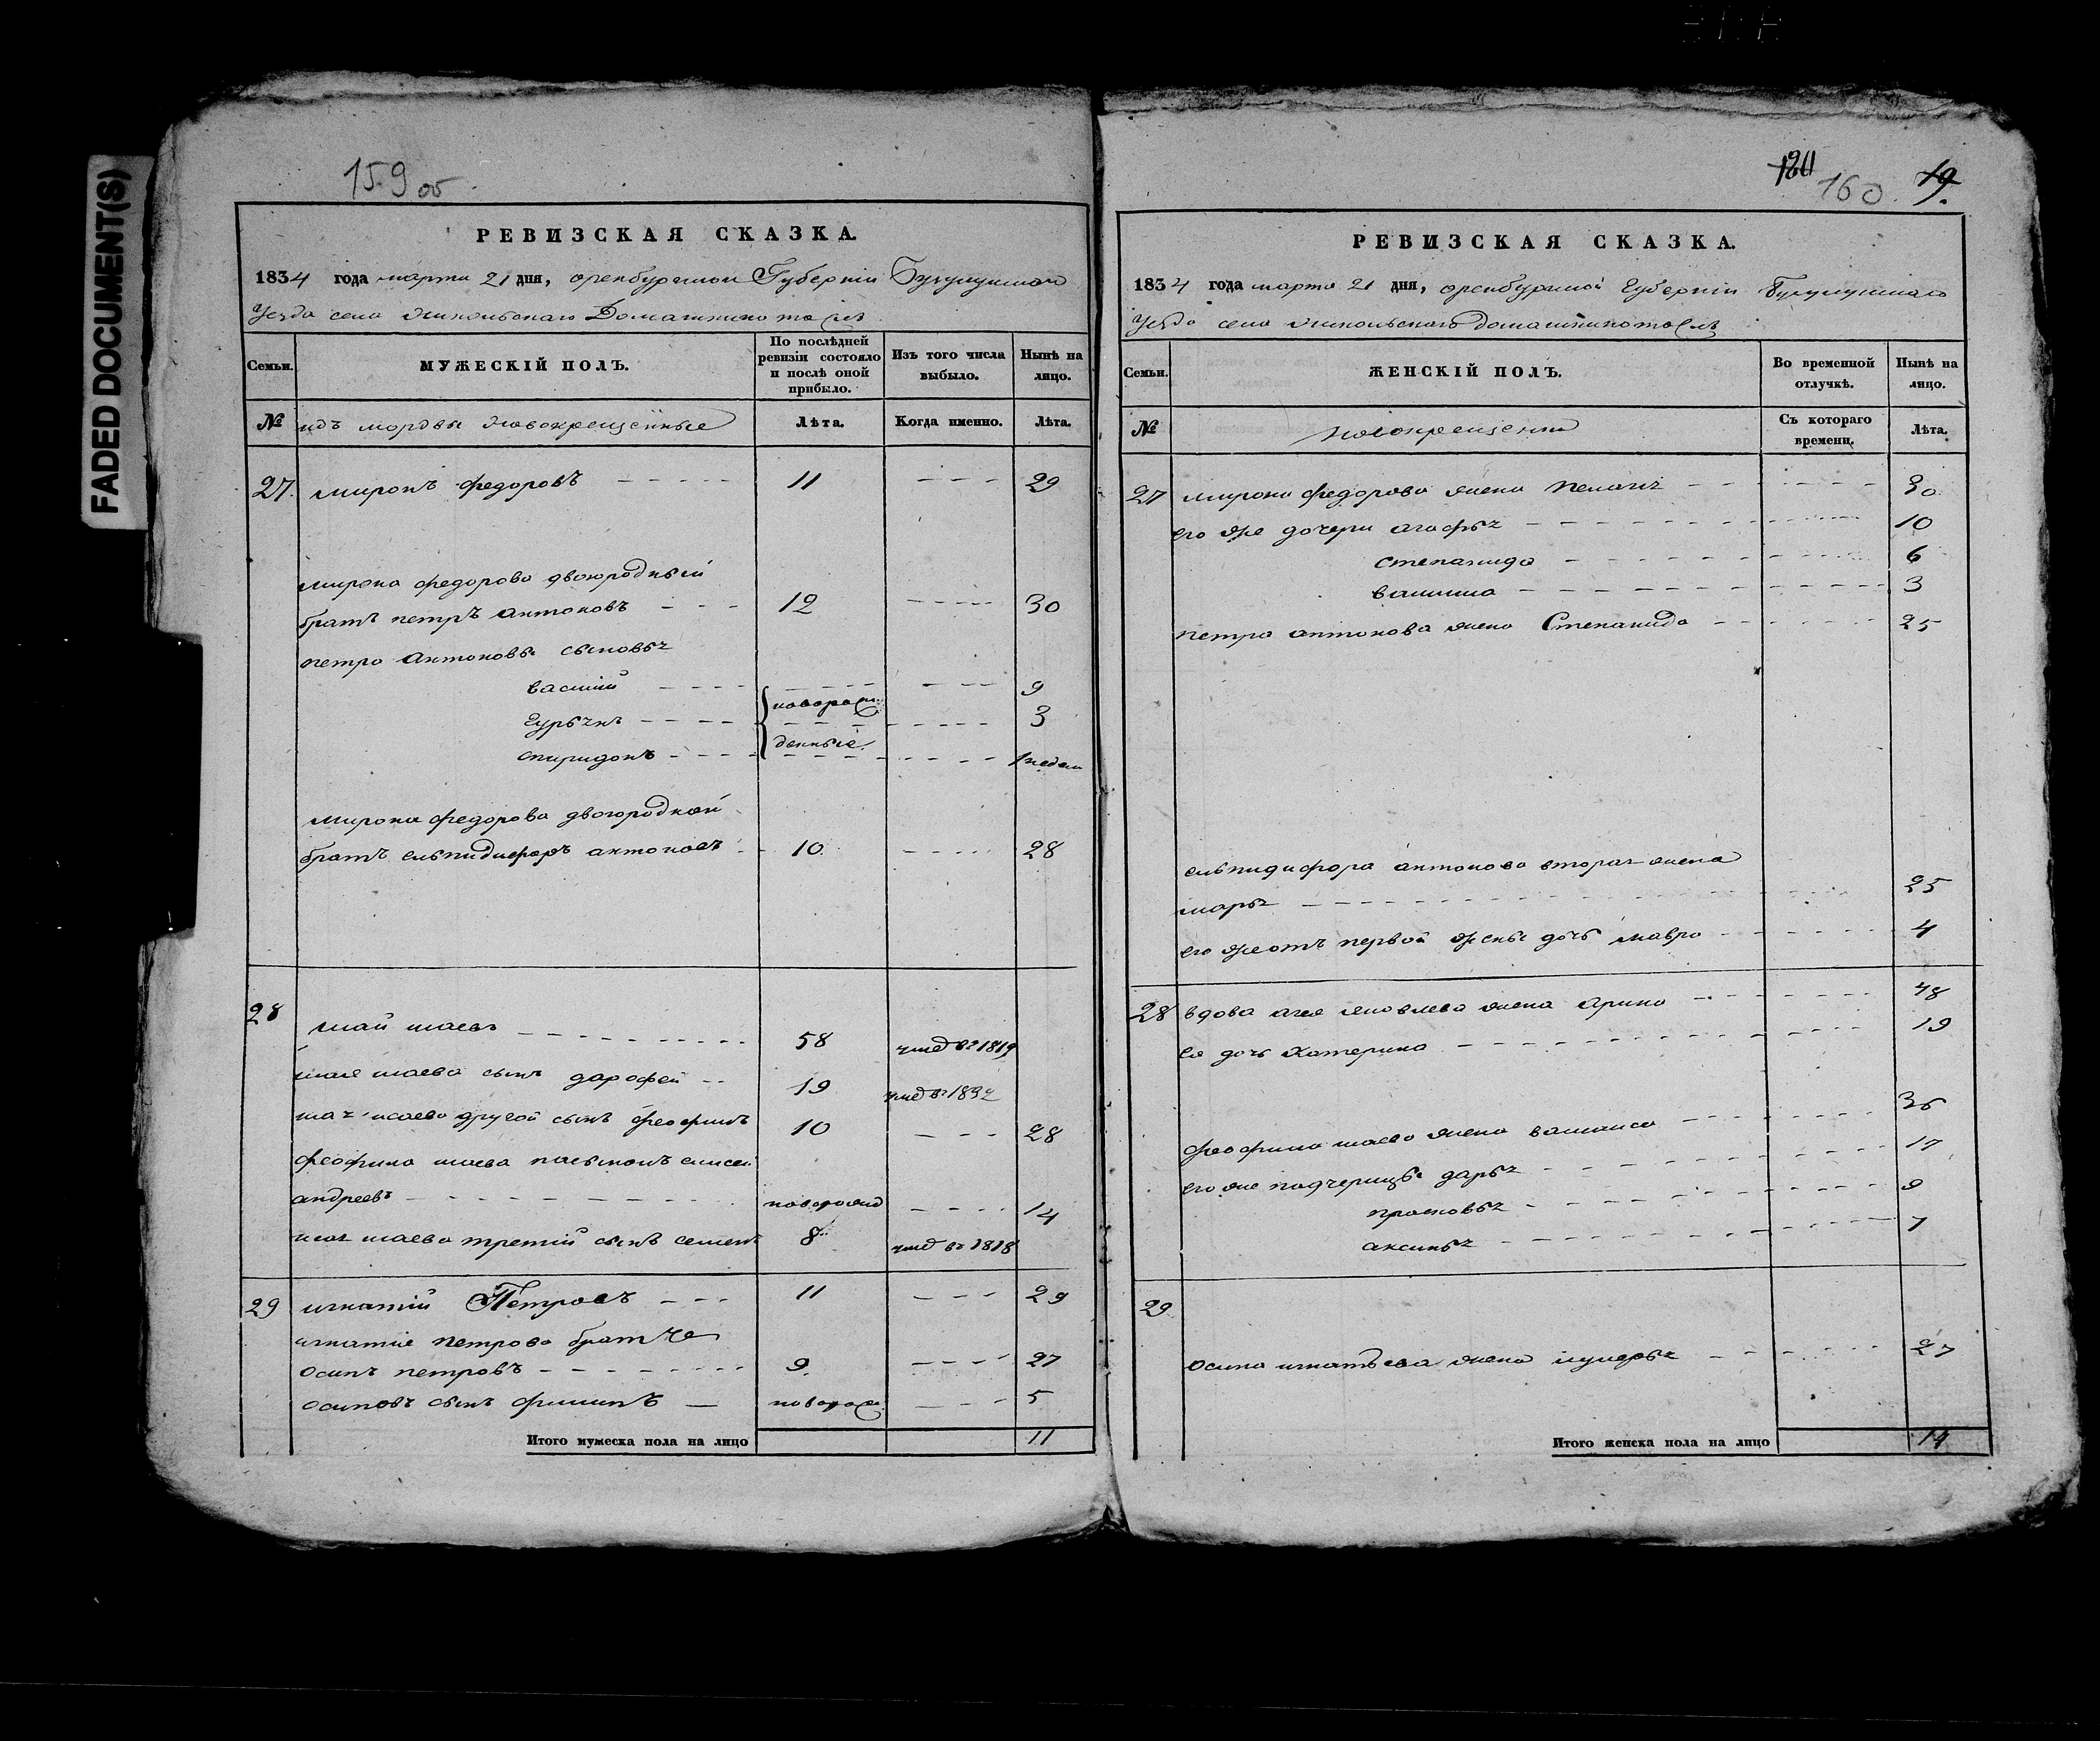 FADED DOCUMENT(S)
159 об.
РЕВИЗСКАЯ СКАЗКА.
1834 года марта 21 дня, оренбурской Губернии Бугульминскаго
Уезда села Никольскаго Домашкино тожъ
Семьи.
МУЖЕСКІЙ ПОЛЪ.
По послѣдней ревизіи состояло и послѣ оной прибыло.
Изъ того числа выбыло.
Нынѣ на лицо.
№ изъ мордвы новокрещенные
Лѣта.
Когда именно.
Лѣта.
27. миронъ федоровъ 11 29
мирона федорова двоюродный
братъ петръ антоновъ 12 30
петра антоновы сыновья
василий 9
новорож
гурьянъ 3
денные
спиридонъ 1 недели
мирона федорова двоюродной
братъ елпидифоръ антоновъ 10 28
28
исай исаевъ 58 умед въ 1819
исая исаева сынъ дарофей 19 умед въ 1832
исая исаева другой сынъ феофилъ 10 28
феофила исаева пасынокъ елисей
андреевъ новорожд 14
исая исаева третий сынъ семенъ 8 умед въ 1818
29 игнатий Петровъ 11 29
игнатие петрова братъе
осипъ петровъ 9 27
осиповъ сынъ филипъ новорож 5
Итого мужеска пола на лицо 11
160. 19.
РЕВИЗСКАЯ СКАЗКА.
1834 года марта 21 дня, оренбурской Губернии Бугульминскаго
Уезда села Никольскаго домашкино тожъ
Семьи.
ЖЕНСКІЙ ПОЛЪ.
Во временной отлучкѣ.
Нынѣ на лицо.
№ новокрещенны
Съ котораго времени.
Лѣта.
27 мирона федорова жена пелагия 30
его же дочери агафья 10
степанида 6
3
петра антонова жена Степанида 25
елпидифора антонова вторая жена
марья 25
его же отъ первой жены дочь мавра 4
28 вдова агея яковлева жена арина 48
ея дочь катерина 19
феофила исаева жена василиса 36
его же падчерицы дарья 17
прасковья 9
аксинья 7
29
осипа игнатьева жена лукерья 27
Итого женска пола на лицо 14